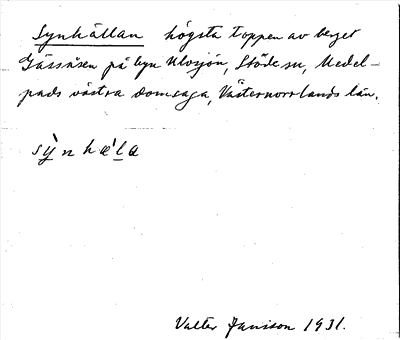 Synhällan högsta toppen av berget
Gässåsen på byn Ulvsjön, Stöde sn, Medel-
pads västra domsaga, Västernorrlands län.
sỳnhæ̀la
Valter Jansson 1931.